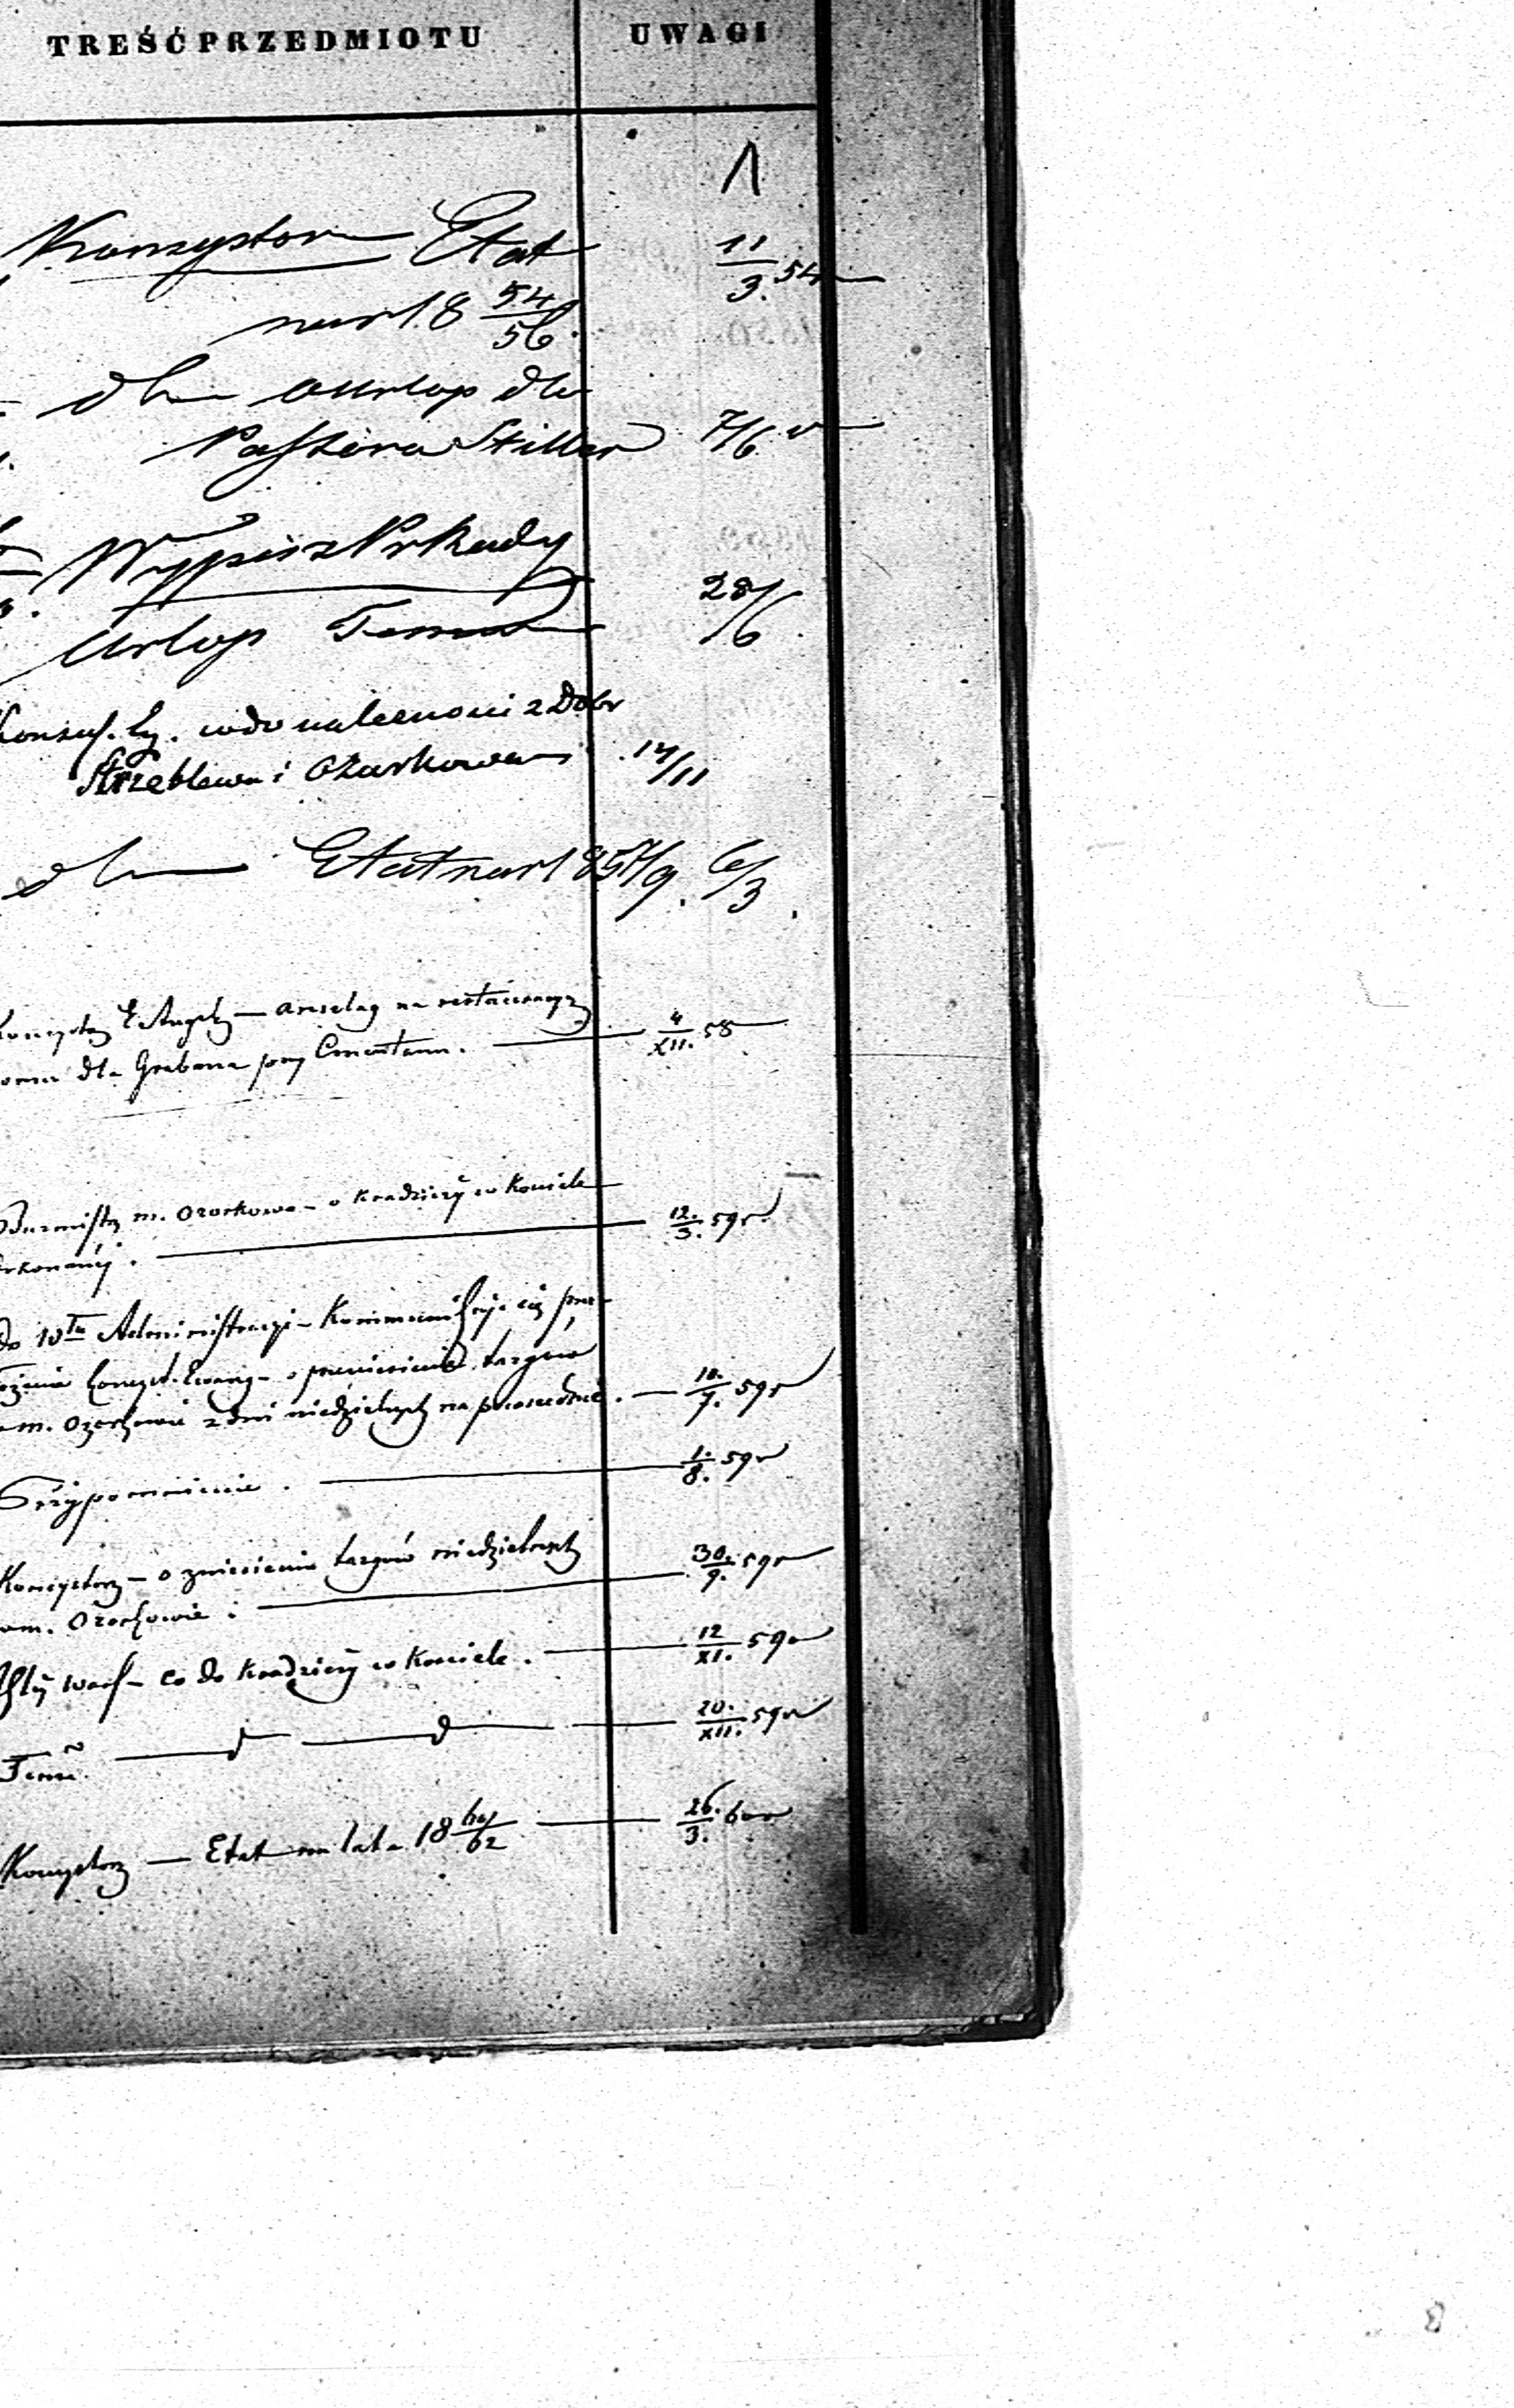 TREŚĆ PRZEDMIOTU UWAGI
1
Konzystor Etat 11/3. 54
na r 18 54/56.
dto o Urlop dla
Pastora Stiller 7/6. r
Wypis z Pr Rady
Urlop Temuż 28/6.
Konsys. Ey. co do należności z Dobr
Strzeblewa i Ozorkowa 14/11
dto Etat na r 1857/9. 6/3.
Konsystorz E. Augsb — anszlag na restauracyą
dla Grabarza przy Cmentarzu. — 4/XII. 58
Burmistrz m. Ozorkowa — o Kradzieży w Kościele
— 12./3. 59 r
Do 10tu Administracyi — Kommunikacyja
Konsyst. Ewang — o przeniesienie targów
m. Ozorkowie z dni niedzielnych na powszednie. — 10./7. 59 r
Przypomnienie. — 1./8. 59 r
Konsystorz — o zniesienie targów niedzielnych
w m. Ozorkowie — 30./9. 59 r
co do Kradzieży w Kościele. — 12/XI. 59 r
Temuż — d — d — 20./XII. 59 r
Konsystorz — Etat na lata 18 60/62 — 26./3. 60 r